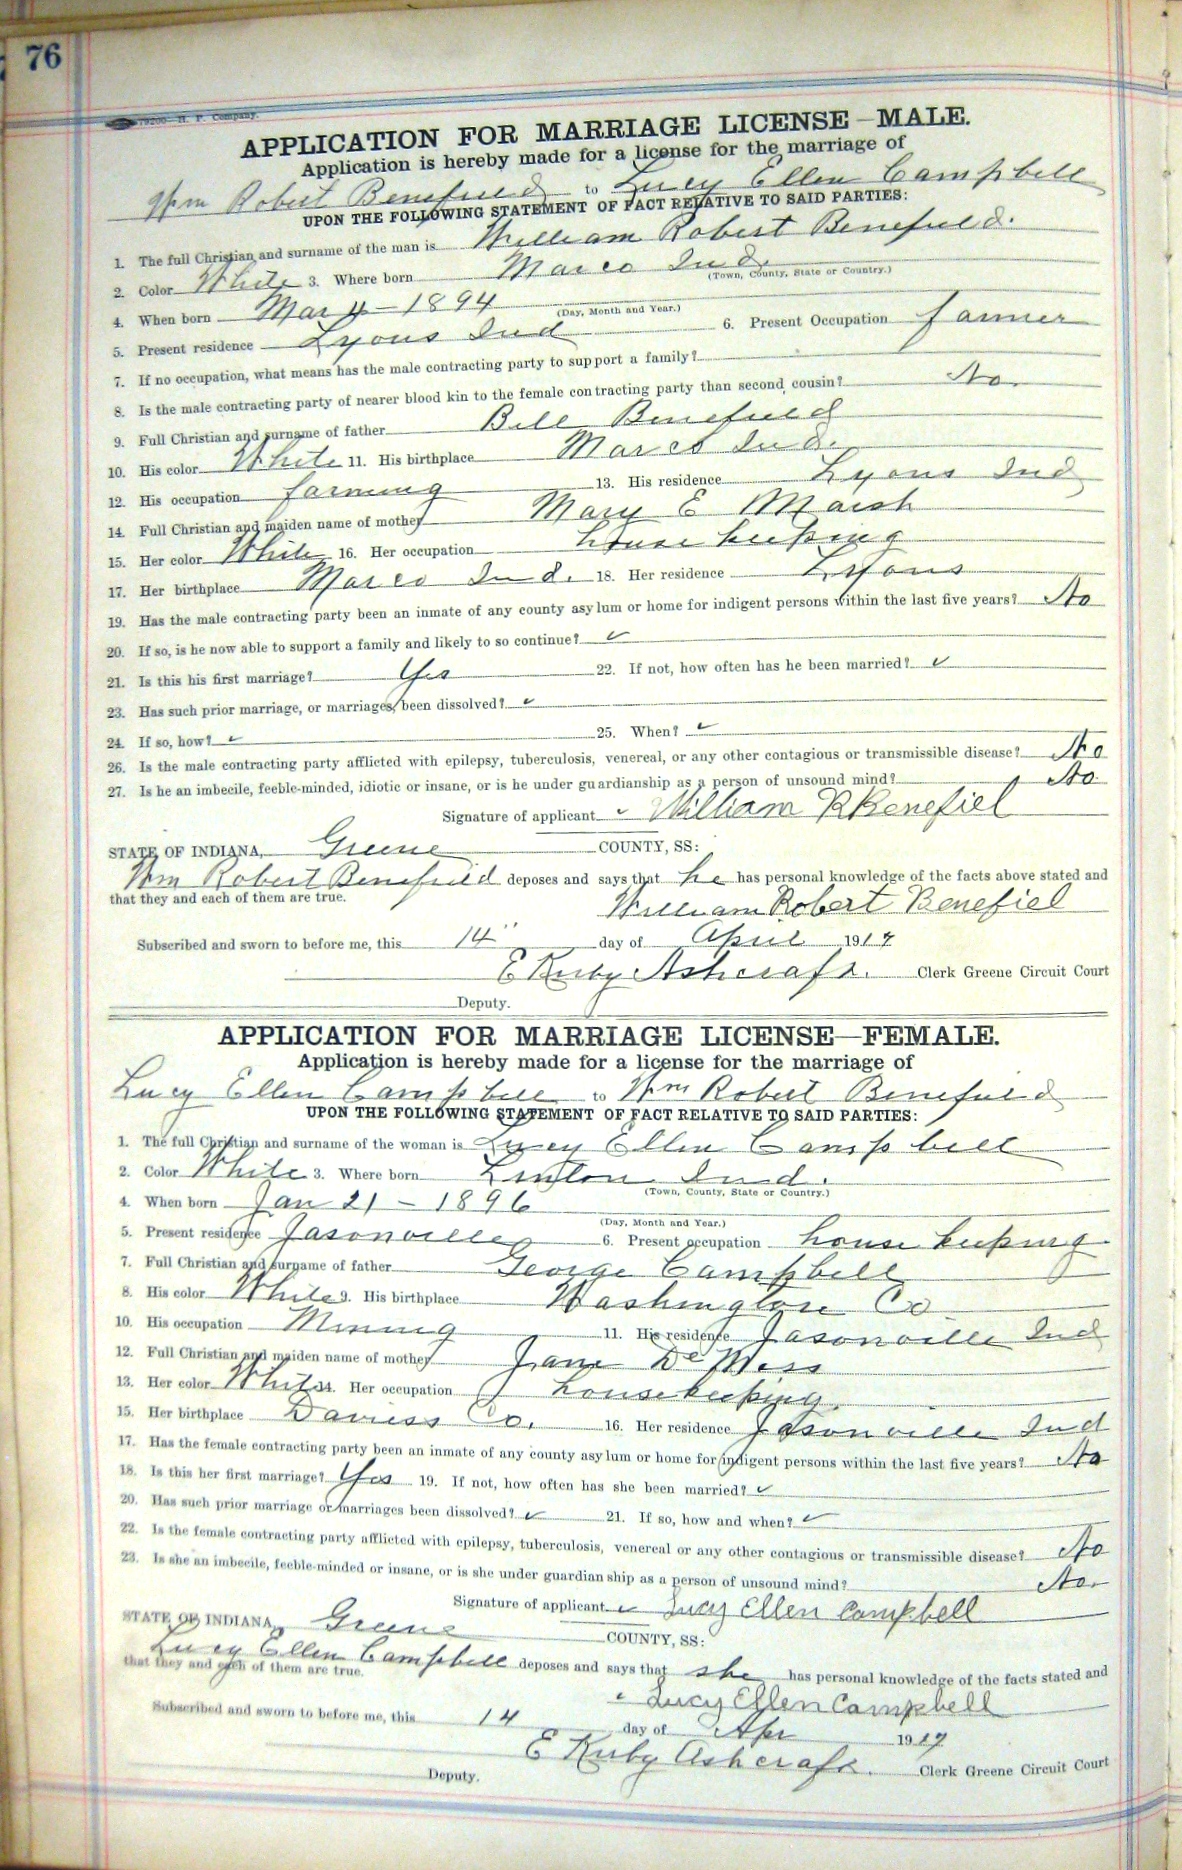 76
79200—H. P. Company.
APPLICATION FOR MARRIAGE LICENSE—MALE.
Application is hereby made for a license for the marriage of
Wm Robert Benefield to Lucy Ellen Campbell
UPON THE FOLLOWING STATEMENT OF FACT RELATIVE TO SAID PARTIES:
1. The full Christian and surname of the man is William Robert Benefield.
2. Color White 3. Where born Marco Ind.
(Town, County, State or Country.)
4. When born Mar 4 – 1894
(Day, Month and Year.)
5. Present residence Lyons Ind 6. Present Occupation farmer
7. If no occupation, what means has the male contracting party to support a family?
8. Is the male contracting party of nearer blood kin to the female contracting party than second cousin? No.
9. Full Christian and surname of father Bill Benefield
10. His color White 11. His birthplace Marco Ind.
12. His occupation farming 13. His residence Lyons Ind
14. Full Christian and maiden name of mother Mary E Marsh
15. Her color White 16. Her occupation house keeping
17. Her birthplace Marco Ind. 18. Her residence Lyons
19. Has the male contracting party been an inmate of any county asylum or home for indigent persons within the last five years? No
20. If so, is he now able to support a family and likely to so continue? ✓
21. Is this his first marriage? Yes 22. If not, how often has he been married? ✓
23. Has such prior marriage, or marriages, been dissolved? ✓
24. If so, how? ✓ 25. When? ✓
26. Is the male contracting party afflicted with epilepsy, tuberculosis, venereal, or any other contagious or transmissible disease? No
27. Is he an imbecile, feeble-minded, idiotic or insane, or is he under guardianship as a person of unsound mind? No.
Signature of applicant ✓ William R Benefiel
STATE OF INDIANA, Greene COUNTY, SS:
Wm Robert Benefield deposes and says that he has personal knowledge of the facts above stated and
that they and each of them are true.
William Robert Benefiel
Subscribed and sworn to before me, this 14" day of April 1917
E Kirby Ashcraft. Clerk Greene Circuit Court
Deputy.
APPLICATION FOR MARRIAGE LICENSE—FEMALE.
Application is hereby made for a license for the marriage of
Lucy Ellen Campbell to Wm Robert Benefield
UPON THE FOLLOWING STATEMENT OF FACT RELATIVE TO SAID PARTIES:
1. The full Christian and surname of the woman is Lucy Ellen Campbell
2. Color White 3. Where born Linton Ind.
(Town, County, State or Country.)
4. When born Jan 21 – 1896
(Day, Month and Year.)
5. Present residence Jasonville 6. Present occupation house keeping
7. Full Christian and surname of father George Campbell
8. His color White 9. His birthplace Washington Co
10. His occupation Mining 11. His residence Jasonville Ind
12. Full Christian and maiden name of mother Jane De Moss
13. Her color White 14. Her occupation housekeeping.
15. Her birthplace Daviess Co. 16. Her residence Jasonville Ind
17. Has the female contracting party been an inmate of any county asylum or home for indigent persons within the last five years? No
18. Is this her first marriage? Yes 19. If not, how often has she been married? ✓
20. Has such prior marriage or marriages been dissolved? ✓ 21. If so, how and when? ✓
22. Is the female contracting party afflicted with epilepsy, tuberculosis, venereal or any other contagious or transmissible disease? No
23. Is she an imbecile, feeble-minded or insane, or is she under guardianship as a person of unsound mind? No.
Signature of applicant ✓ Lucy Ellen Campbell
STATE OF INDIANA, Greene COUNTY, SS:
Lucy Ellen Campbell deposes and says that she has personal knowledge of the facts stated and
that they and each of them are true.
✓ Lucy Ellen Campbell
Subscribed and sworn to before me, this 14 day of Apr 1917
E Kirby Ashcraft. Clerk Greene Circuit Court
Deputy.